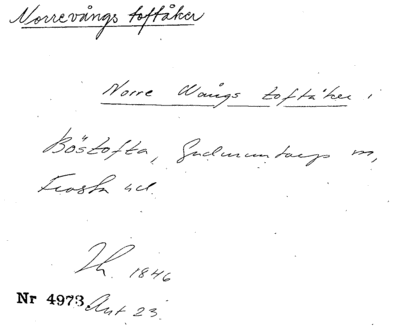 Norrevångs toftåker
Norre Wångs toftåker i
Böstofta, Gudmuntorps sn,
Frosta hd.
Lh. 1846
Nr 4973 Akt 23.